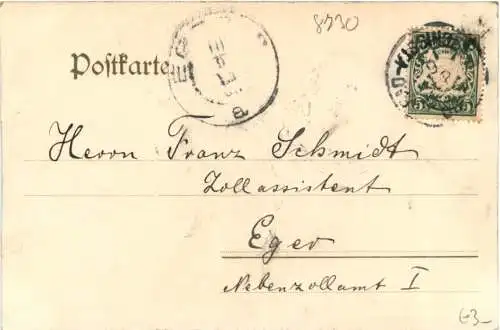 8730
Postkarte
EG
a
BAD-KISSINGEN
5 5
Herrn Franz Schmidt
Zollassistent
Eger
Nebenzollamt I
€3-